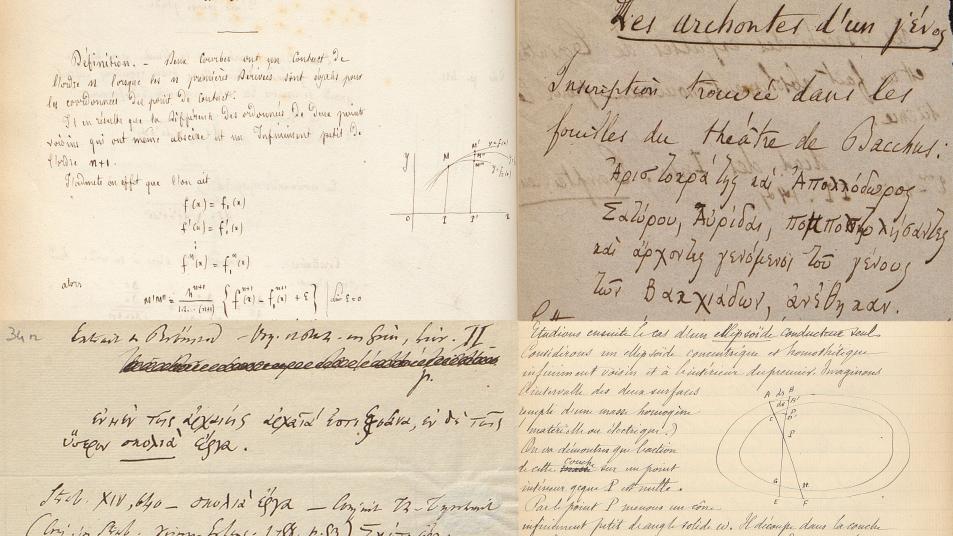 Définition. – Deux courbes ont un contact de
l'ordre n lorsque les n premières dérivées sont égales pour
les coordonnées du point de contact.
Il en résulte que la différence des ordonnées de deux points
voisins qui ont même abscisse est un infiniment petit de
l'ordre n+1.
J'admets en effet que l'on ait
f(x) = f₁(x)
f'(x) = f₁'(x)
⋮
fⁿ(x) = f₁ⁿ(x)
alors
M'M'' = hⁿ⁺¹/1.2...(n+1) { fⁿ⁺¹(x) - f₁ⁿ⁺¹(x) + ε } lim ε=0
y M M' y=f(x)
M''
o P P' x
Les archontes d'un γένος
Inscription trouvée dans les
fouilles du théâtre de Bacchus:
Ἀριστοκράτης καὶ Ἀπολλόδωρος
Σατύρου, Αὐρίδαι, πομποστολήσαντες
καὶ ἄρχοντες γενόμενοι τοῦ γένους
τῶν Βακχιάδων, ἀνέθηκαν.
34 n
Extrait de II
p.
ἐν μὲν τοῖς ἀρχαίοις ἀρχαῖά ἐστι ξόανα, ἐν δὲ τοῖς
ὕστερον σκολιὰ ἔργα.
Strab. XIV, 640 – σκολιὰ ἔργα – Conjecit
Etudions ensuite le cas d'un ellipsoïde conducteur seul.
Considérons un ellipsoïde concentrique et homothétique
infiniment voisin et à l'intérieur du premier. Imaginons
l'intervalle des deux surfaces
remplie d'une masse homogène
(matérielle ou électrique.)
On va démontrer que l'action
de cette couche sur un point
intérieur quelque P est nulle.
Par le point P menons un cône
infiniment petit de angle solide ω. Il découpe dans la couche
A ds B
P
G H
E F